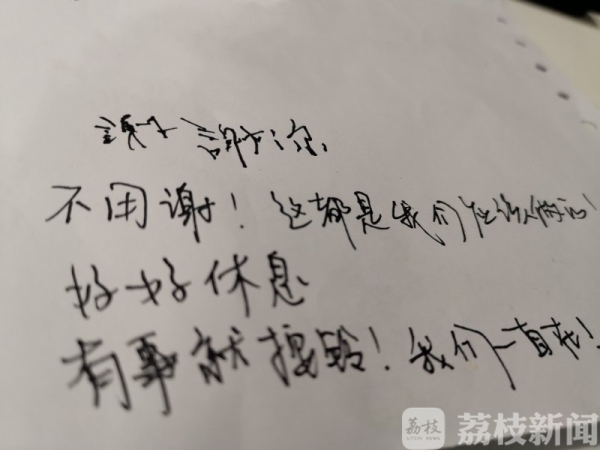 謝谢 謝谢您
不用谢！这都是我们应该做的！
好好休息
有事就摁铃！我们一直在！
荔枝
LITCHI NEWS
荔枝新闻